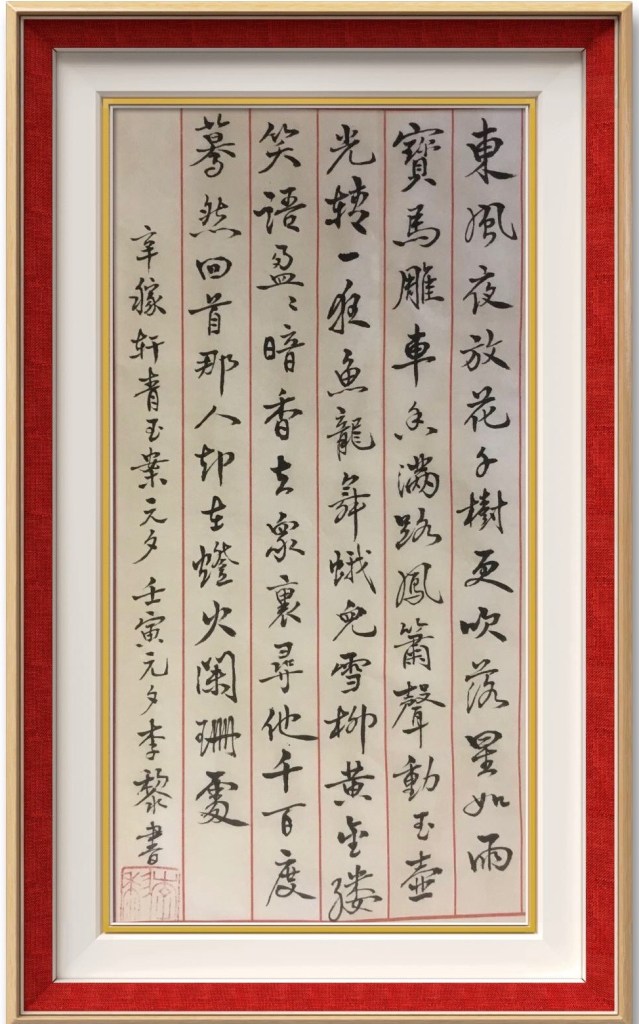 東風夜放花千樹更吹落星如雨
寶馬雕車香滿路鳳簫聲動玉壺
光轉一夜魚龍舞蛾兒雪柳黃金縷
笑語盈〻暗香去眾裏尋他千百度
驀然回首那人却在燈火闌珊處
辛稼軒青玉案元夕壬寅元夕李黎書